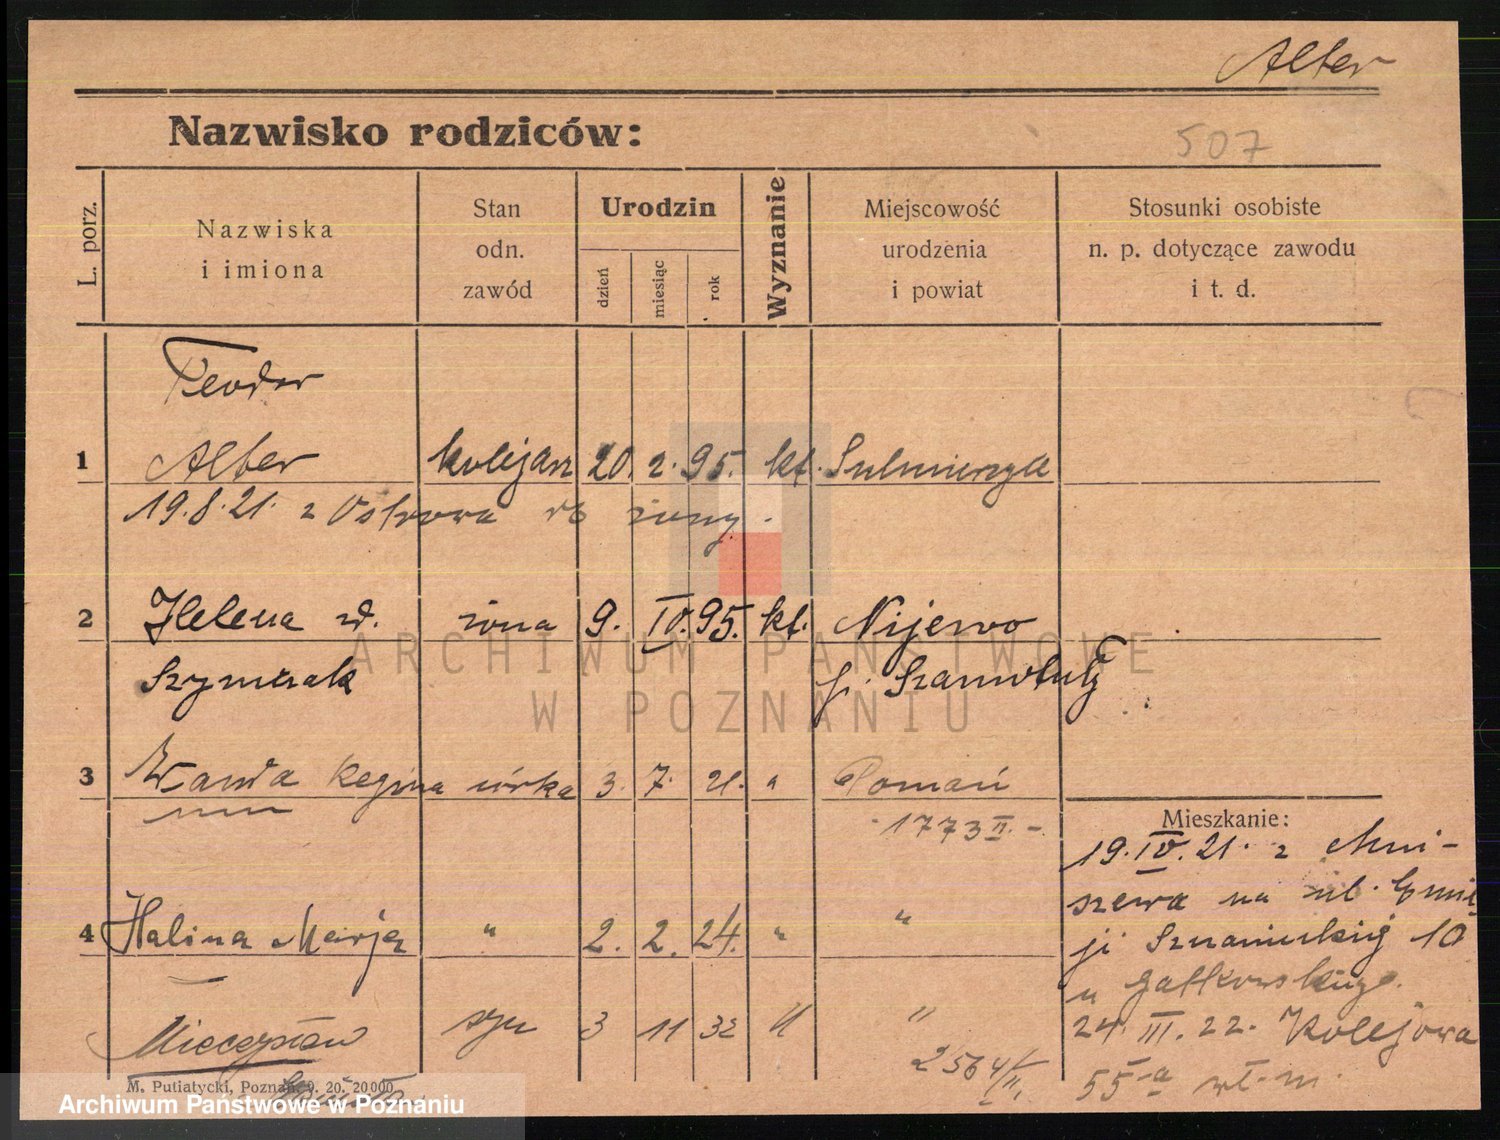 Alter
Nazwisko rodziców:
507
L. porz.
Nazwiska
i imiona
Stan
odn.
zawód
Urodzin
dzień
miesiąc
rok
Wyznanie
Miejscowość
urodzenia
i powiat
Stosunki osobiste
n. p. dotyczące zawodu
i t. d.
Teodor
1 Alter kolejarz 20. 2. 95. kt. Sulmierzyce
19.8.21. z Ostrowa do żony.
2 Helena zd. żona 9. IV. 95. kt. Nijewo
Szymczak p. Szamotuły
3 Wanda Regina córka 3. 7. 21. " Poznań
1773 II. -
Mieszkanie:
19.IV.21. z Mni-
szewa na ul. Emi-
4 Halina Marja " 2. 2. 24. " "
ji Sczanieckiej 10
u Gałkowskiego.
Mieczysław syn 3 11 32 " "
24. III. 22. Kolejowa
2564/II.
55a wł. m.
M. Putiatycki, Poznań. 9. 20. 20000.
ARCHIWUM PAŃSTWOWE
W POZNANIU
Archiwum Państwowe w Poznaniu